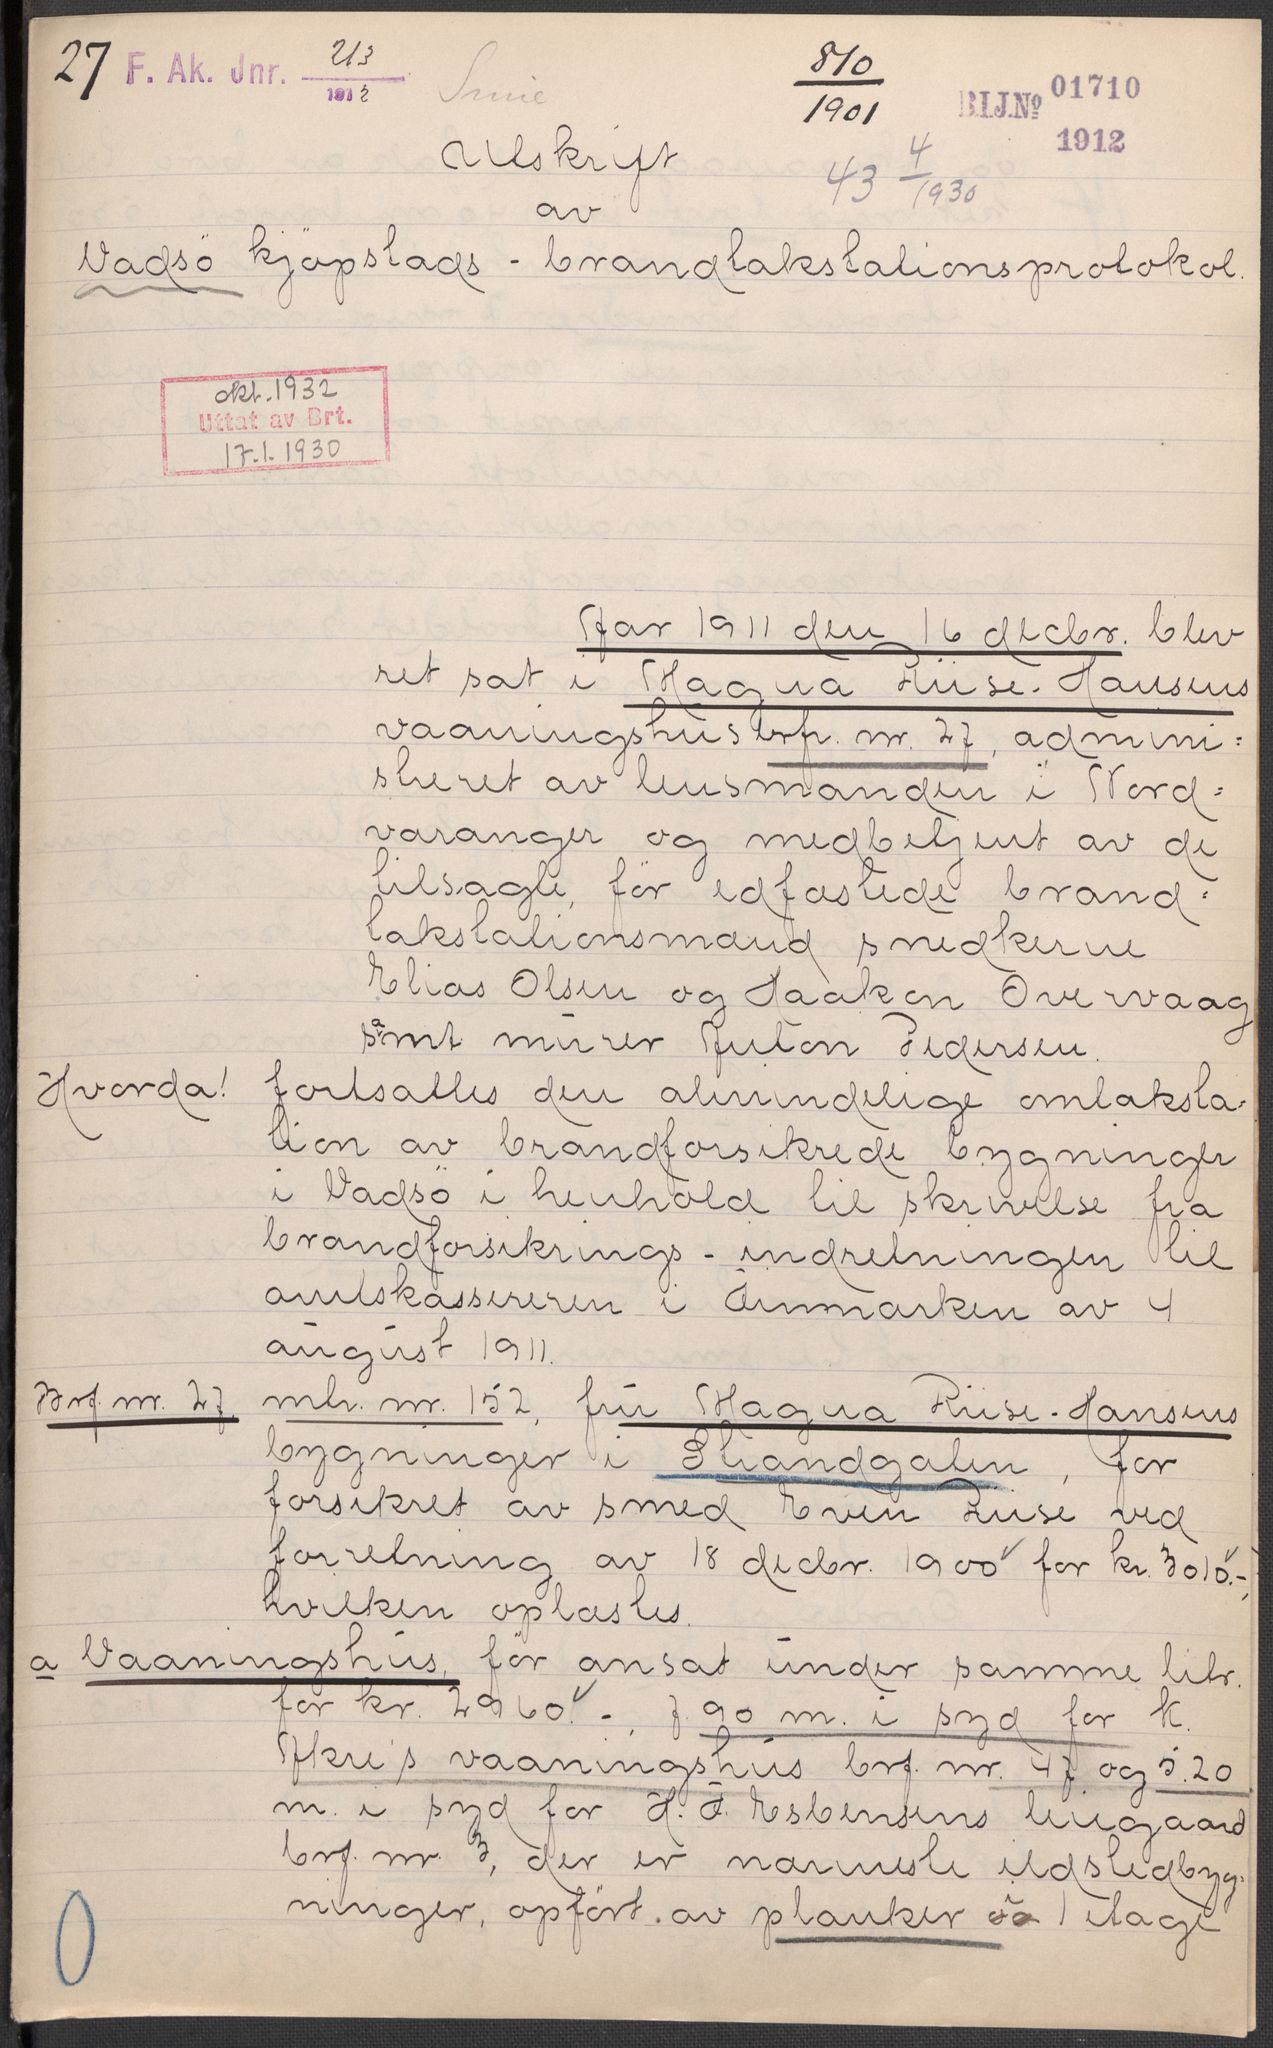 27 F. Ak. Jnr. 213/1912
810/1901
B.I.J.No 01710
1912
43 4/1930
Utskrift
av
Vadsö kjöpstads - brandtakstationsprotokol.
okt. 1932
Uttat av Brt.
17.1.1930
Aar 1911 den 16 decbr. blev
ret sat i Magna Riise-Hansens
vaaningshus brf. nr. 27, admini=
streret av lensmanden i Nord=
varanger og medbetjent av de
tilsagte, för edfæstede brand=
takstationsmænd snedkerne
Elias Olsen og Haakon Overvaag
samt murer Anton Pedersen.
Hvorda! fortsattes den almindelige omtaksta-
tion av brandforsikrede bygninger
i Vadsö i henhold til skrivelse fra
brandforsikrings-indretningen til
amtskassereren i Finmarken av 4
august 1911.
Brf. nr. 27 mtr. nr. 152, fru Magna Riise-Hansens
bygninger i Strandgaten, för
forsikret av smed Even Riise ved
forretning av 18 decbr. 1900 for kr. 3010.-,
hvilken oplæstes.
a Vaaningshus, för ansat under samme litr.
for kr. 2960.-, 7.90 m. i syd for K.
Akre's vaaningshus brf. nr. 47 og 5.20
m. i syd for H. F. Esbensens leiegaard
brf. nr. 3, der er nærmeste ildstedbyg-
ninger, opfört av planker i 1 etage